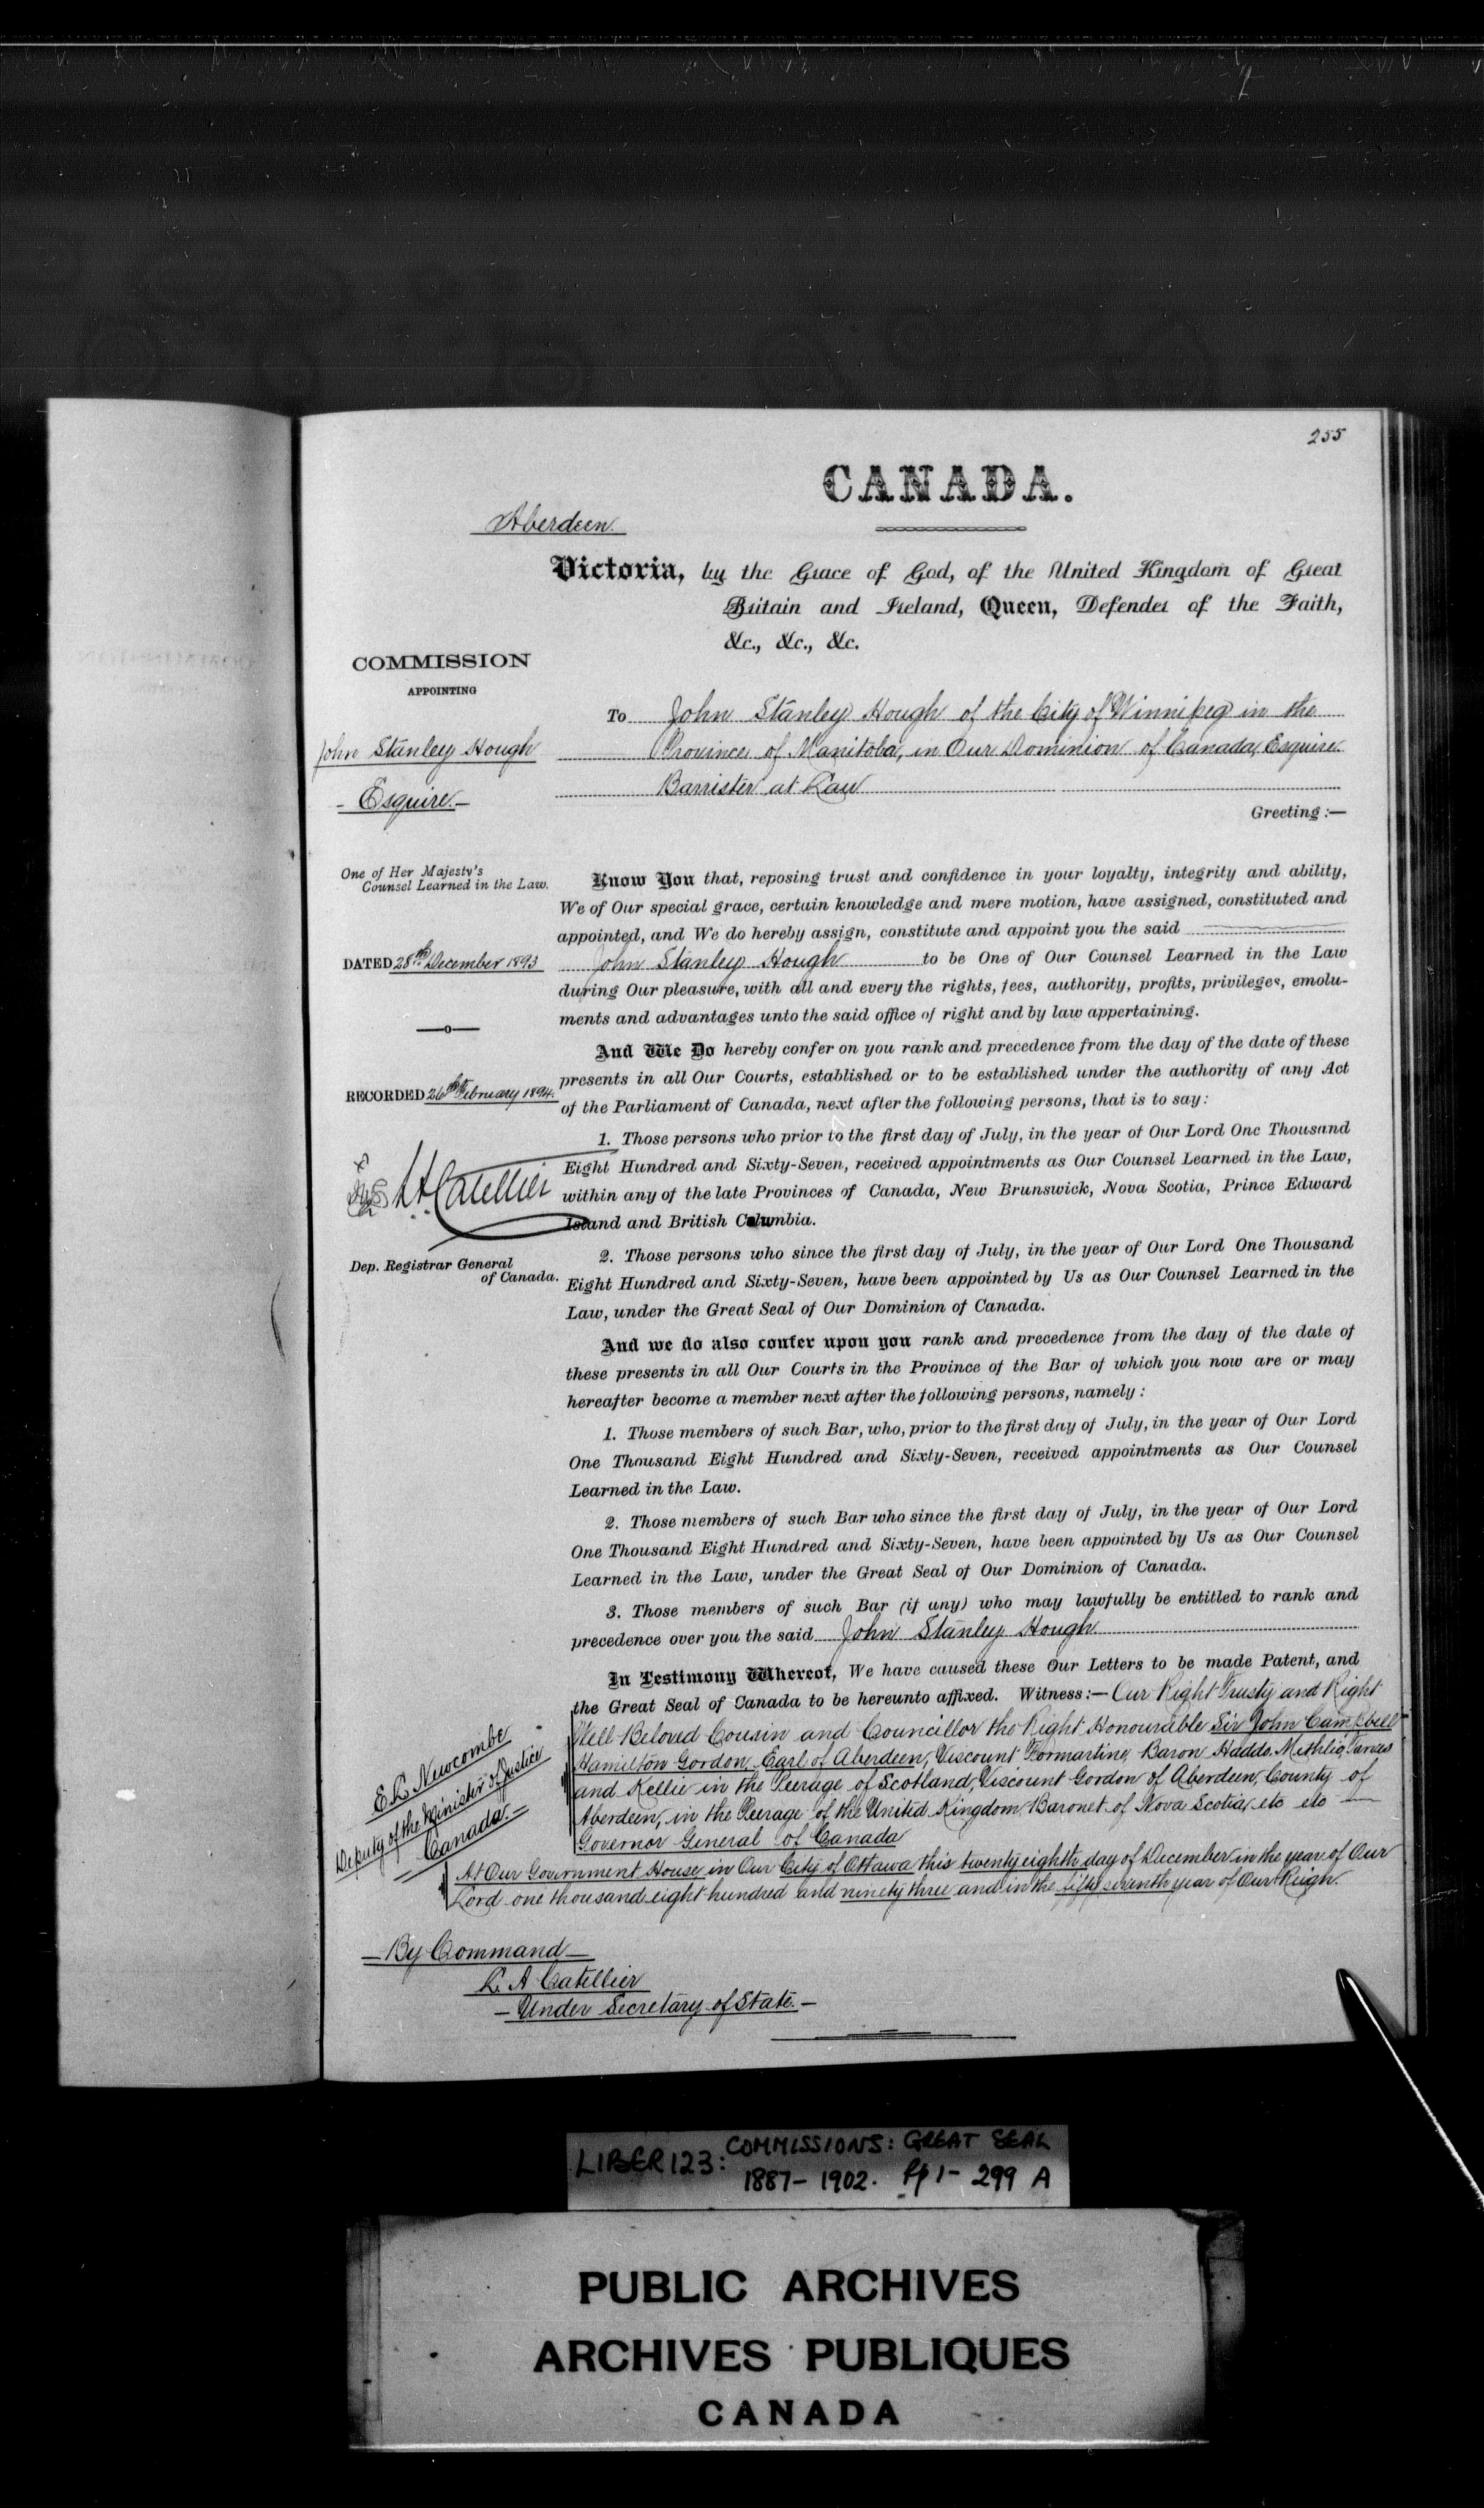 255
CANADA.
Aberdeen.
Victoria, by the Grace of God, of the United Kingdom of Great
Britain and Ireland, Queen, Defender of the Faith,
&c., &c., &c.
COMMISSION
APPOINTING
John Stanley Hough
- Esquire. -
One of Her Majesty's
Counsel Learned in the Law.
DATED 28th December 1893
—o—
RECORDED 26th February 1894.
L.A. Catellier
Dep. Registrar General
of Canada.
To John Stanley Hough of the City of Winnipeg in the
Province of Manitoba, in Our Dominion of Canada, Esquire.
Barrister at Law
Greeting :—
Know You that, reposing trust and confidence in your loyalty, integrity and ability,
We of Our special grace, certain knowledge and mere motion, have assigned, constituted and
appointed, and We do hereby assign, constitute and appoint you the said
John Stanley Hough to be One of Our Counsel Learned in the Law
during Our pleasure, with all and every the rights, fees, authority, profits, privileges, emolu-
ments and advantages unto the said office of right and by law appertaining.
And We Do hereby confer on you rank and precedence from the day of the date of these
presents in all Our Courts, established or to be established under the authority of any Act
of the Parliament of Canada, next after the following persons, that is to say:
1. Those persons who prior to the first day of July, in the year of Our Lord One Thousand
Eight Hundred and Sixty-Seven, received appointments as Our Counsel Learned in the Law,
within any of the late Provinces of Canada, New Brunswick, Nova Scotia, Prince Edward
Island and British Columbia.
2. Those persons who since the first day of July, in the year of Our Lord One Thousand
Eight Hundred and Sixty-Seven, have been appointed by Us as Our Counsel Learned in the
Law, under the Great Seal of Our Dominion of Canada.
And we do also confer upon you rank and precedence from the day of the date of
these presents in all Our Courts in the Province of the Bar of which you now are or may
hereafter become a member next after the following persons, namely :
1. Those members of such Bar, who, prior to the first day of July, in the year of Our Lord
One Thousand Eight Hundred and Sixty-Seven, received appointments as Our Counsel
Learned in the Law.
2. Those members of such Bar who since the first day of July, in the year of Our Lord
One Thousand Eight Hundred and Sixty-Seven, have been appointed by Us as Our Counsel
Learned in the Law, under the Great Seal of Our Dominion of Canada.
3. Those members of such Bar (if any) who may lawfully be entitled to rank and
precedence over you the said John Stanley Hough
In Testimony Whereof, We have caused these Our Letters to be made Patent, and
the Great Seal of Canada to be hereunto affixed. Witness:— Our Right Trusty and Right
Well Beloved Cousin and Councillor the Right Honourable Sir John Campbell
Hamilton Gordon, Earl of Aberdeen, Viscount Formartine, Baron Haddo, Methlic, Tarves
and Kellie in the Peerage of Scotland, Viscount Gordon of Aberdeen, County of
Aberdeen, in the Peerage of the United Kingdom Baronet of Nova Scotia, etc etc —
Governor General of Canada
E. L. Newcombe
Deputy of the Minister of Justice
- Canada. -
At Our Government House in Our City of Ottawa this twenty eighth day of December in the year of Our
Lord one thousand eight hundred and ninety three and in the fifty seventh year of Our Reign.
- By Command -
L. A Catellier
- Under Secretary of State. -
LIBER 123: COMMISSIONS: GREAT SEAL
1887 - 1902. pp 1 - 299 A
PUBLIC ARCHIVES
ARCHIVES PUBLIQUES
CANADA